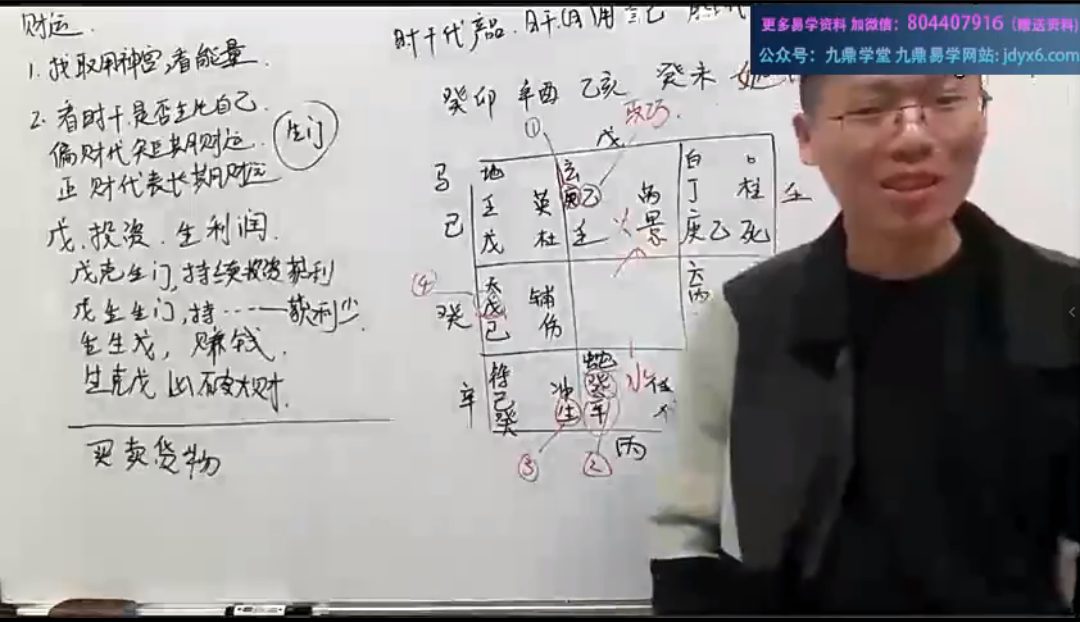 财运.
1. 找取用神宫,看能量.
2. 看时干是否生比自己.
偏财代短期财运.
正财代表长期财运
生门
戊.投资.生利润.
戊克生门,持续投资获利
戊生生门,持……获利少.
生生戊,赚钱.
生克戊 凶 破大财.
买卖货物
时干代产品.日干(月)用自己
更多易学资料 加微信：804407916（赠送资料）
公众号：九鼎学堂 九鼎易学网站: jdyx6.com
癸卯 辛酉 乙亥 癸未
①
取巧.
戊.
马 地 玄 白
壬 英 乙 丙 丁 柱
巳 戊 杜 壬 火 景 庚 乙 死
④
天 六
癸 戊 辅 丙
己 伤
符 蛇 水
辛 己 冲 癸
癸 生 辛
③ ② 丙